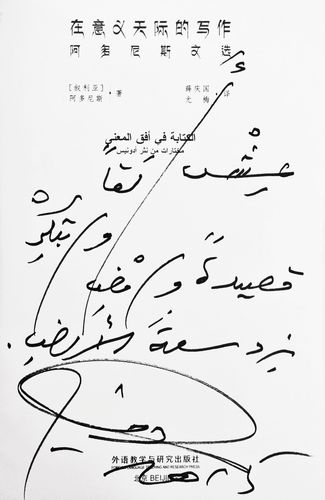 在意义天际的写作
阿多尼斯文选
[叙利亚]
阿多尼斯 · 著
薛庆国
尤梅 · 译
الكتابة في أفق المعنى
مختارات من نثر أدونيس
عِشْ ألقاً
وابتكرْ
قصيدةً وامضِ
زد سعةَ الأرضِ.
外语教学与研究出版社
FOREIGN LANGUAGE TEACHING AND RESEARCH PRESS
北京 BEIJING